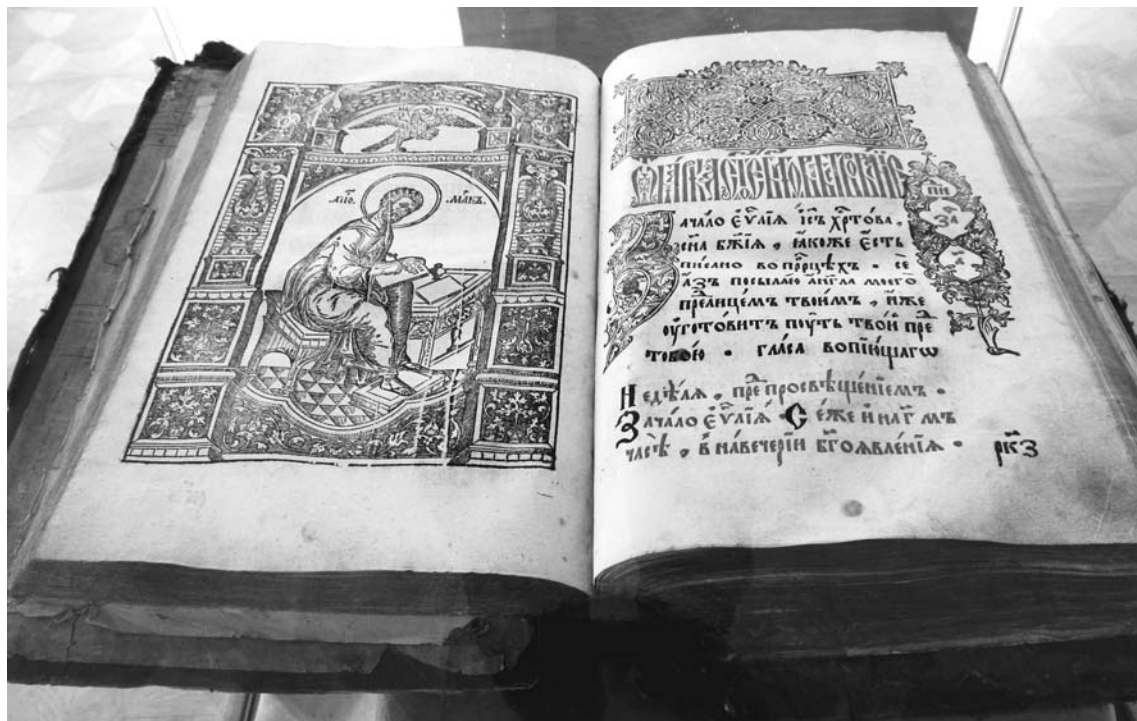 А҆ПО. МАКЪ.
Ѿ МАРКА СТ҃ОЕ БЛГОВѢСТВОВАНІЕ
ЗАЧАЛО ЕѴ҃ЛІѦ І҆С҃Ъ ХР҃ТОВА,
СН҃А БЖ҃ІѦ, Ꙗ҆КОЖЕ Е҆СТЬ
ПИСАНО ВО ПР҇ОРЦѢХЪ. СЕ
А҆ЗЪ ПОСЫЛАЮ А҆НГЛА МОЕГО
ПРЕ҇ЛИЦЕМЪ ТВОИМЪ, И҆ЖЕ
ОУ҆ГОТОВИТЪ ПОУТЬ ТВОЙ ПРЕ҇
ТОБОЮ. ГЛАСА ВОПІЮЩАГѠ
НЕДѢЛѦ, ПРЕ҇ ПРОСВѢЩЕНІЕМЪ.
ЗАЧАЛО ЕѴ҃ЛІѦ. СЕ҆ ЖЕ И҆ НА Г҃ М҇Ъ
ЧАСѢ, В НАВЕЧЕРІИ БГ҃ОѦВЛЕНІѦ.
РК҃З